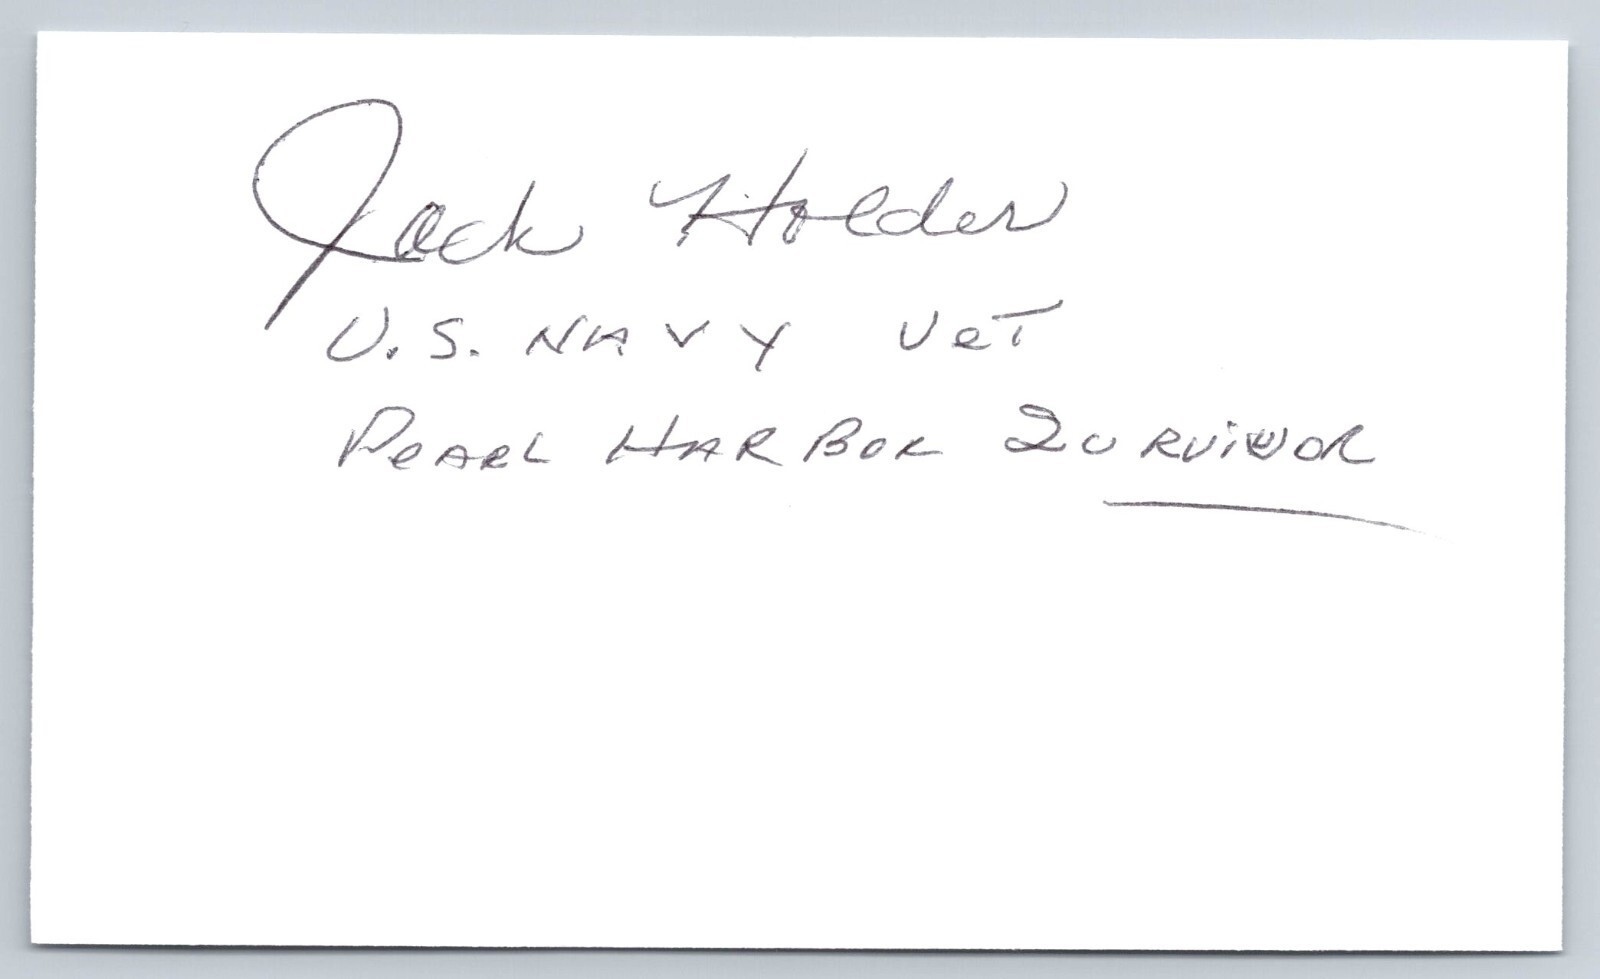 Jack Holder
U.S. NAVY VeT
PeARL HARBOR SURViVOR